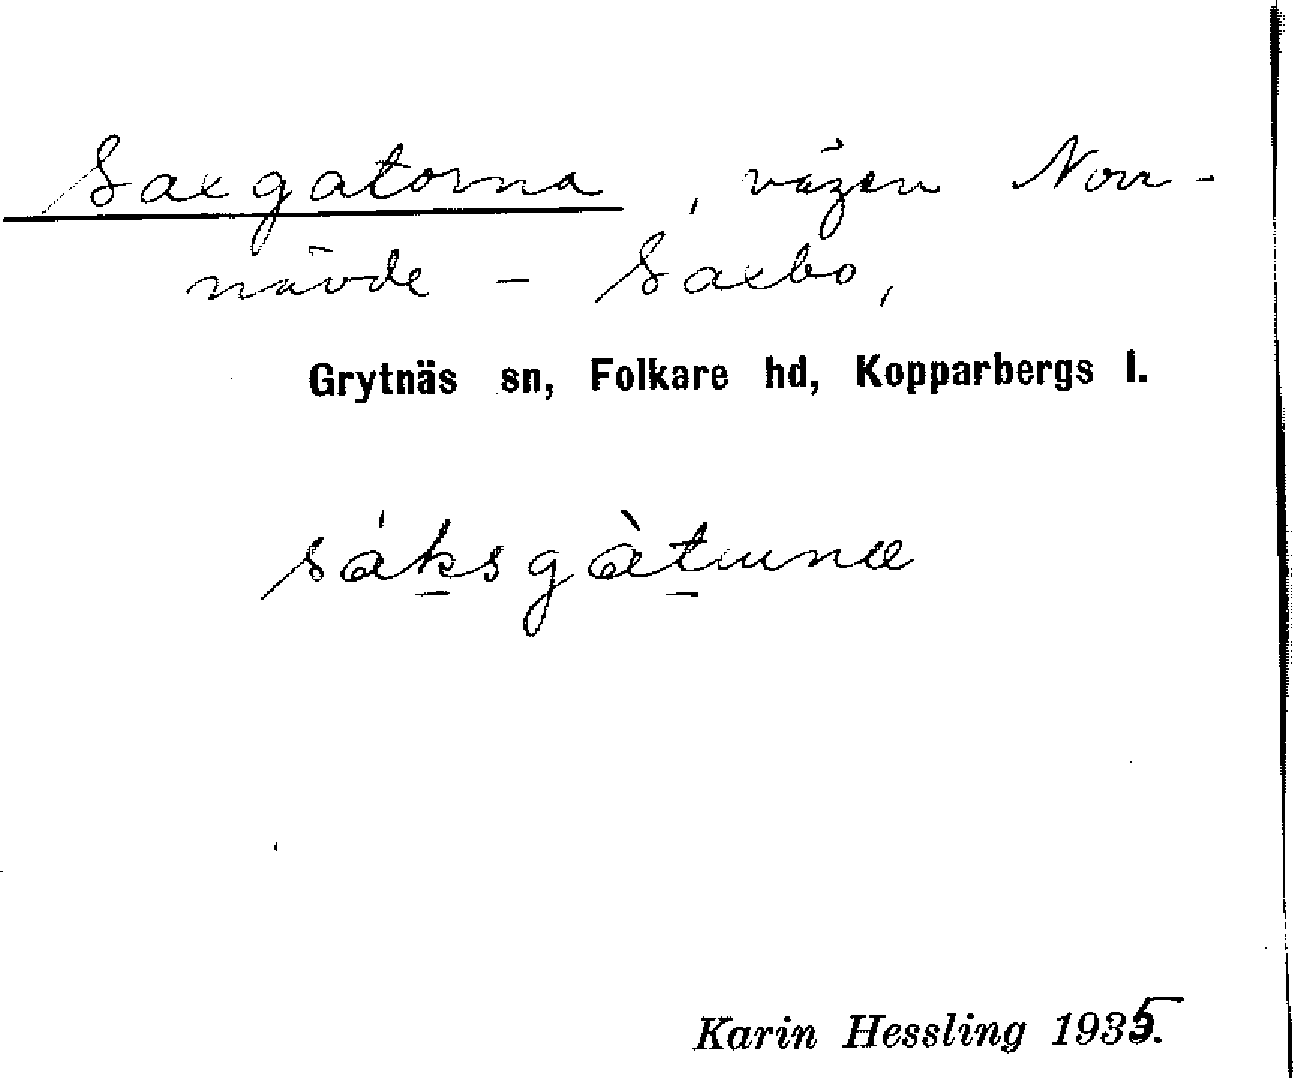 Saxgatorna, vägen Norr-
nävde - Saxbo,
Grytnäs sn, Folkare hd, Kopparbergs l.
sáksgàtunæ
Karin Hessling 1935.